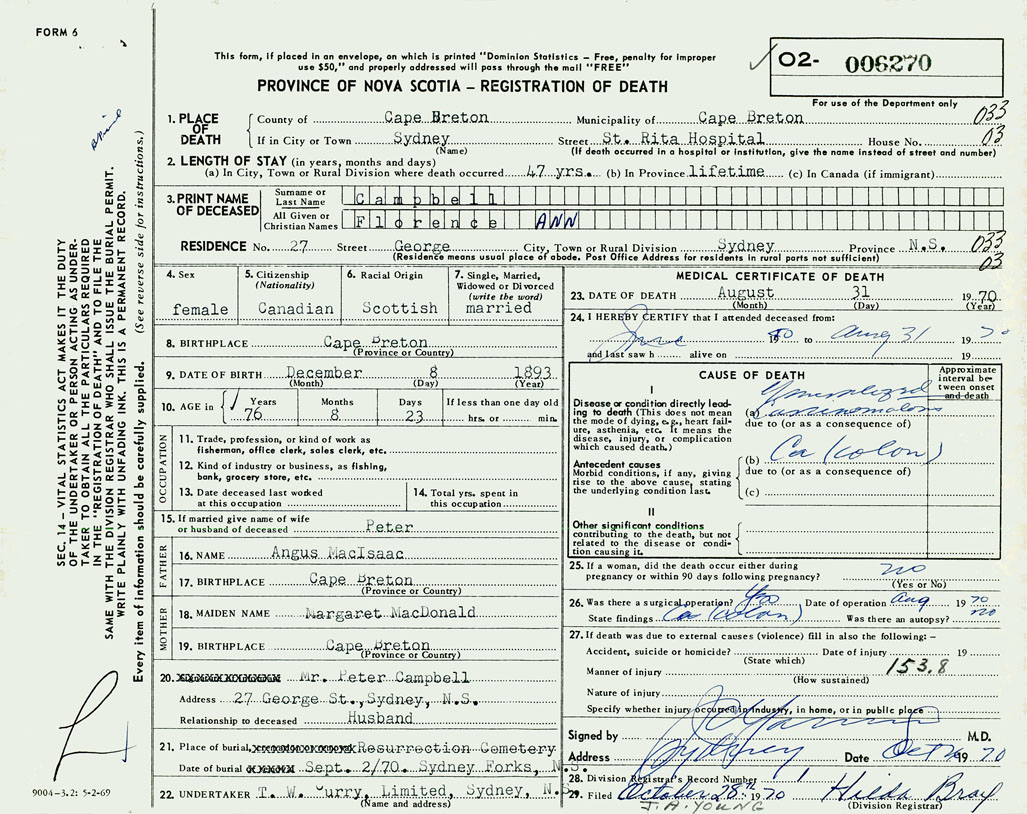 FORM 6
This form, if placed in an envelope, on which is printed "Dominion Statistics – Free, penalty for improper
use $50," and properly addressed will pass through the mail "FREE"
PROVINCE OF NOVA SCOTIA – REGISTRATION OF DEATH
O2- 006270
For use of the Department only
SEC. 14 – VITAL STATISTICS ACT MAKES IT THE DUTY
OF THE UNDERTAKER OR PERSON ACTING AS UNDER-
TAKER TO OBTAIN ALL THE PARTICULARS REQUIRED
IN THE "REGISTRATION OF DEATH" AND TO FILE THE
SAME WITH THE DIVISION REGISTRAR WHO SHALL ISSUE THE BURIAL PERMIT.
WRITE PLAINLY WITH UNFADING INK. THIS IS A PERMANENT RECORD.
Every item of information should be carefully supplied. (See reverse side for instructions.)
1. PLACE OF DEATH
County of Cape Breton Municipality of Cape Breton 033
If in City or Town Sydney Street St. Rita Hospital House No. 03
(Name) (If death occurred in a hospital or institution, give the name instead of street and number)
2. LENGTH OF STAY (in years, months and days)
(a) In City, Town or Rural Division where death occurred 47 yrs. (b) In Province lifetime (c) In Canada (if immigrant)
3. PRINT NAME OF DECEASED
Surname or Last Name Campbell
All Given or Christian Names Florence ANN
RESIDENCE No. 27 Street George City, Town or Rural Division Sydney Province N.S. 033
(Residence means usual place of abode. Post Office Address for residents in rural parts not sufficient) 03
4. Sex
female
5. Citizenship
(Nationality)
Canadian
6. Racial Origin
Scottish
7. Single, Married,
Widowed or Divorced
(write the word)
married
8. BIRTHPLACE Cape Breton
(Province or Country)
9. DATE OF BIRTH December 8 1893
(Month) (Day) (Year)
10. AGE in Years Months Days If less than one day old
76 8 23 hrs. or min.
OCCUPATION
11. Trade, profession, or kind of work as
fisherman, office clerk, sales clerk, etc.
12. Kind of industry or business, as fishing,
bank, grocery store, etc.
13. Date deceased last worked
at this occupation
14. Total yrs. spent in
this occupation
15. If married give name of wife
or husband of deceased Peter
FATHER
16. NAME Angus MacIsaac
17. BIRTHPLACE Cape Breton
(Province or Country)
MOTHER
18. MAIDEN NAME Margaret MacDonald
19. BIRTHPLACE Cape Breton
(Province or Country)
20. Mr. Peter Campbell
Address 27 George St., Sydney, N.S.
Relationship to deceased Husband
21. Place of burial, Resurrection Cemetery
Date of burial Sept. 2/70. Sydney Forks, N.S.
22. UNDERTAKER T. W. Curry, Limited, Sydney, N.S.
(Name and address)
9004-3.2: 5-2-69
MEDICAL CERTIFICATE OF DEATH
23. DATE OF DEATH August 31 1970
(Month) (Day) (Year)
24. I HEREBY CERTIFY that I attended deceased from:
June 19 to Aug 31 1970
and last saw h alive on 19
CAUSE OF DEATH
Approximate
interval be-
tween onset
and death
I
Disease or condition directly lead-
ing to death (This does not
mean the mode of dying, e.g., heart fail-
ure, asthenia, etc. It means the
disease, injury, or complication
which caused death.)
Generalized
(a)
due to (or as a consequence of)
Antecedent causes
Morbid conditions, if any, giving
rise to the above cause, stating
the underlying condition last.
(b) Ca (colon)
due to (or as a consequence of)
(c)
II
Other significant conditions
contributing to the death, but not
related to the disease or condi-
tion causing it.
25. If a woman, did the death occur either during
pregnancy or within 90 days following pregnancy? no
(Yes or No)
26. Was there a surgical operation? Yes Date of operation Aug 1970
State findings Ca (colon) Was there an autopsy? no
27. If death was due to external causes (violence) fill in also the following: –
Accident, suicide or homicide? Date of injury 19
(State which)
Manner of injury 153.8
(How sustained)
Nature of injury
Specify whether injury occurred in industry, in home, or in public place
Signed by M.D.
Address Sydney Date Oct 1970
28. Division Registrar's Record Number 1
29. Filed October 28th 1970 Hilda Bray
J. A. YOUNG (Division Registrar)